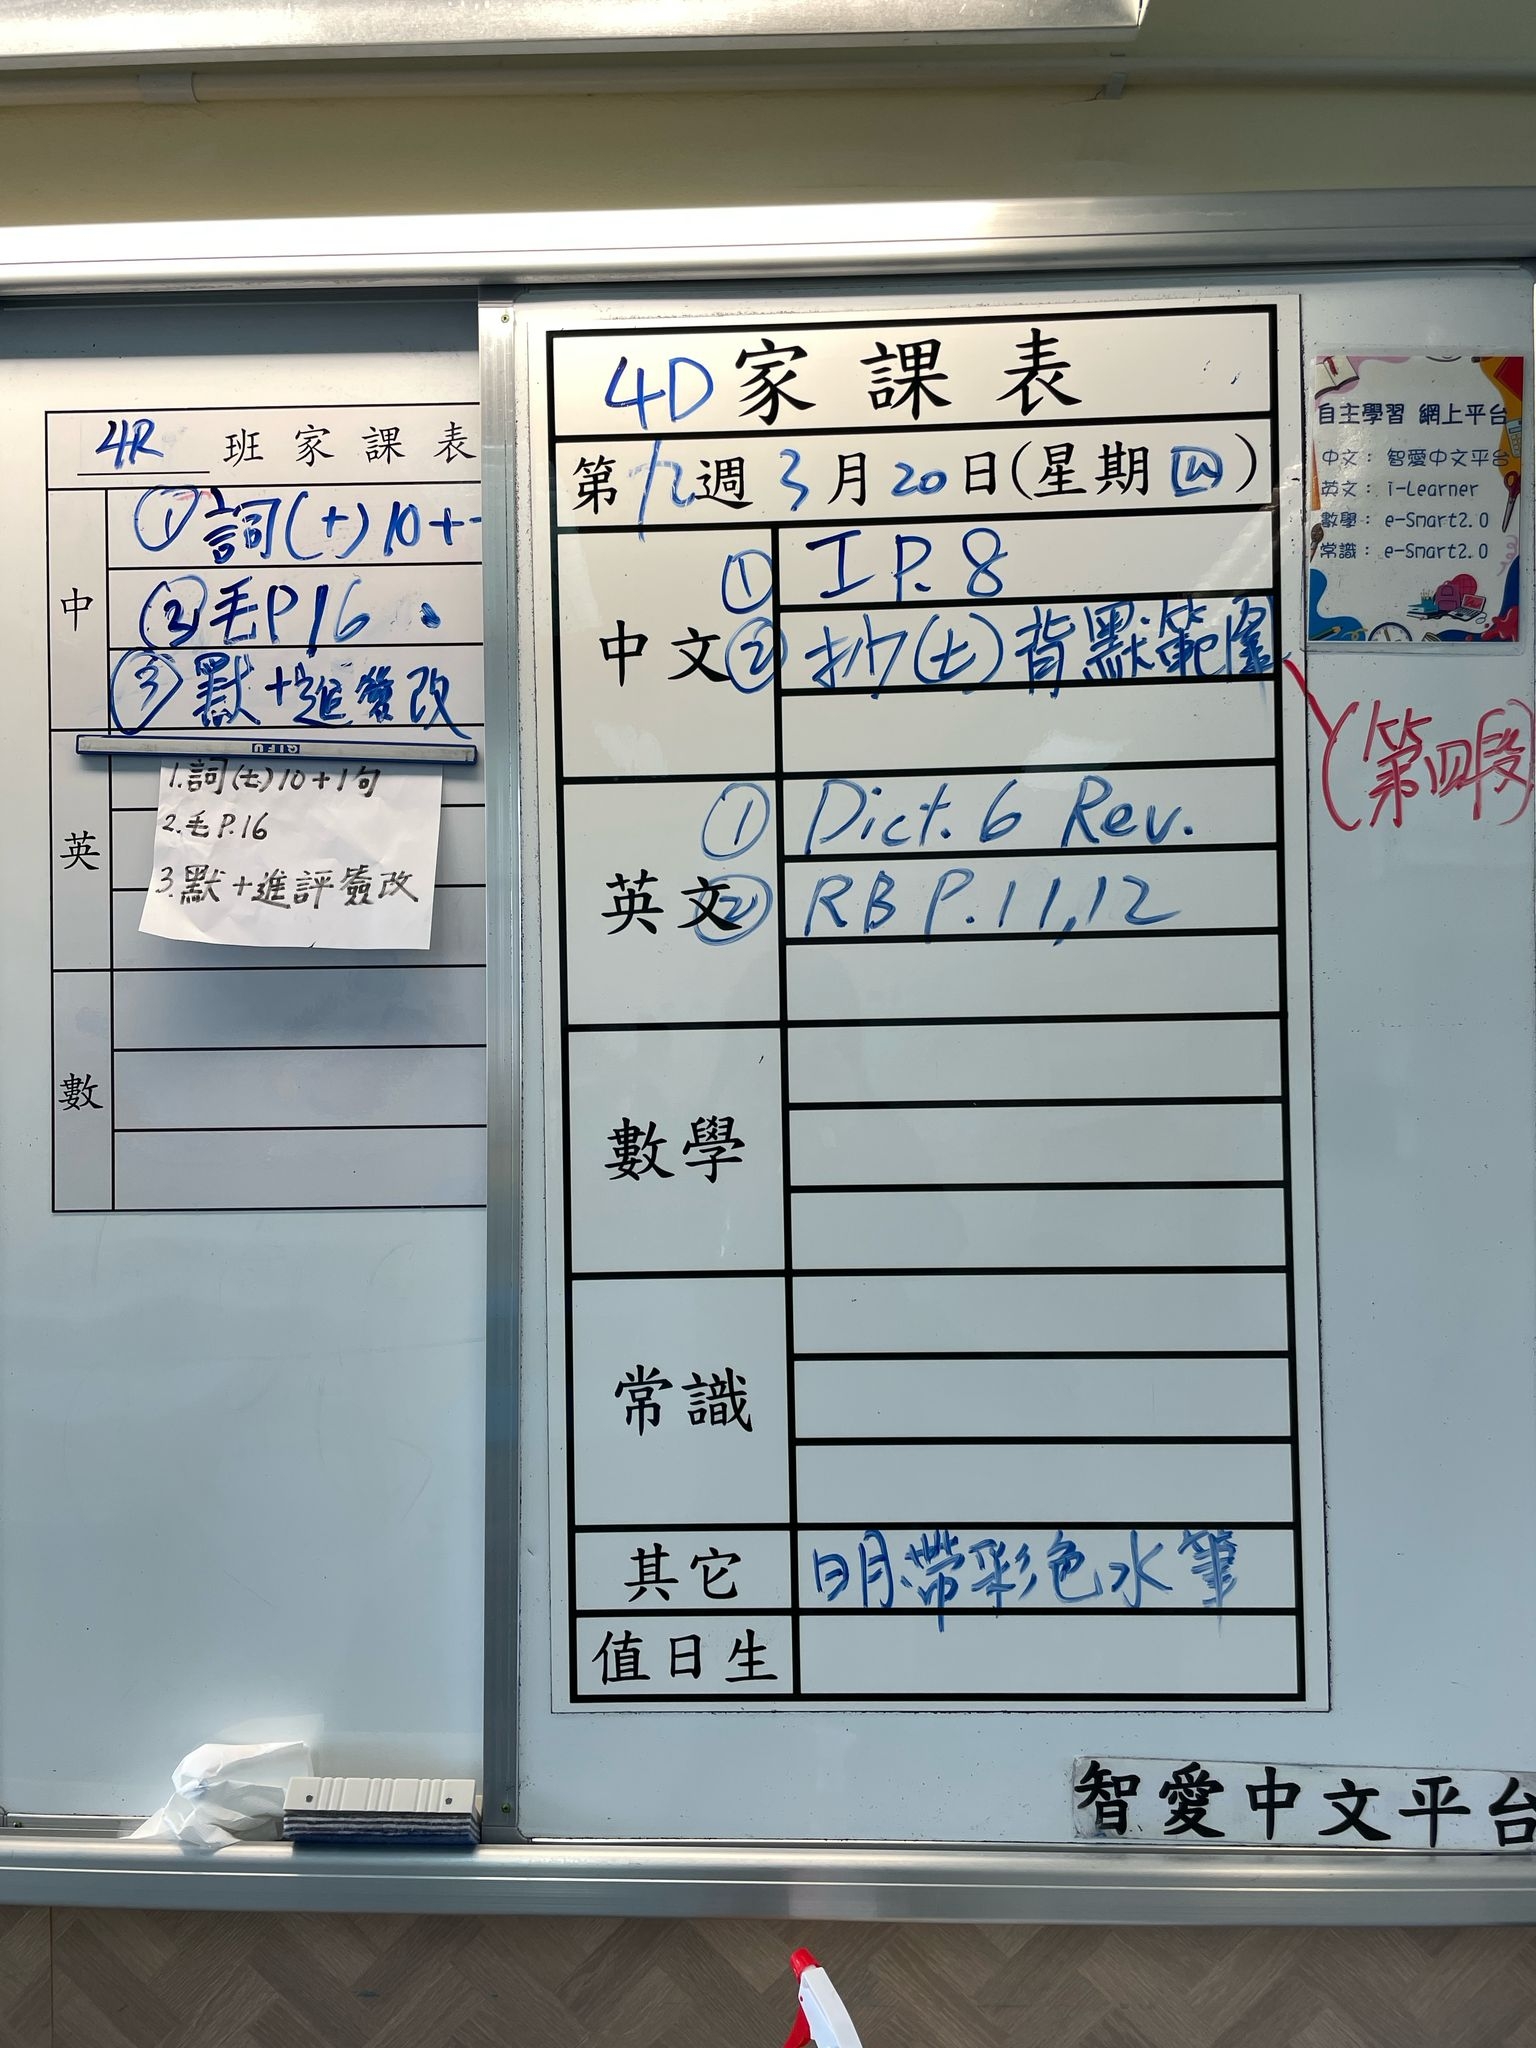 4R 班家課表
中
① 詞(十)10+
② 毛P16
③ 默+進簽改
QIFU
英
1.詞(士)10+1句
2.毛P.16
3.默+進評簽改
數
4D家課表
第九週3月20日(星期四)
中文
① 工P.8
② 抄(士)背默範圍
(第四段)
英文
① Dict. 6 Rev.
② RB P.11,12
數學
常識
其它
明帶彩色水筆
值日生
自主學習 網上平台
中文： 智愛中文平台
英文： i-Learner
數學： e-Smart2.0
常識： e-Smart2.0
智愛中文平台